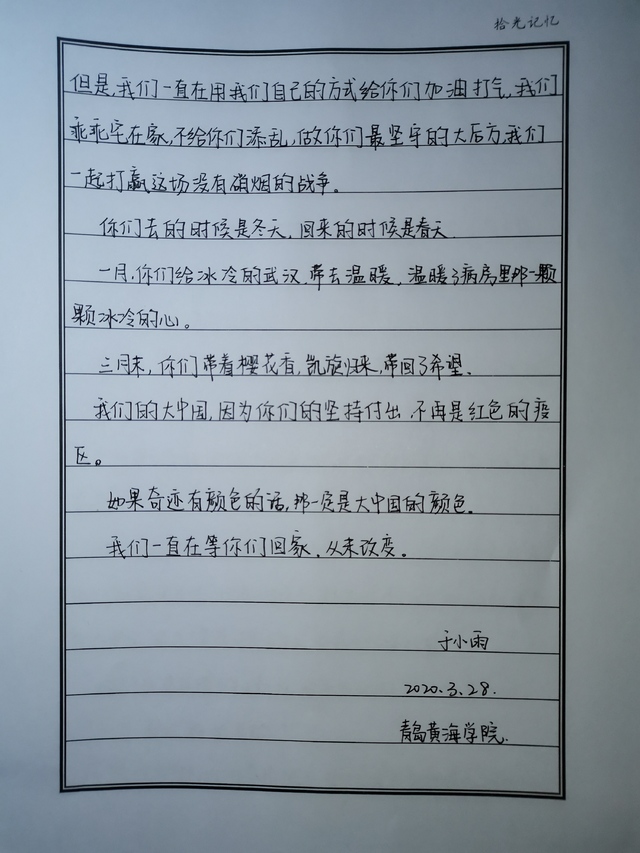 拾光记忆
但是,我们一直在用我们自己的方式给你们加油打气,我们
乖乖宅在家,不给你们添乱,做你们最坚牢的大后方,我们
一起打赢这场没有硝烟的战争。
你们去的时候是冬天,回来的时候是春天
一月,你们给冰冷的武汉,带去温暖,温暖了病房里那一颗
颗冰冷的心。
三月末,你们带着樱花香,凯旋归来,带回了希望、
我们的大中国,因为你们的坚持付出,不再是红色的疫
区。
如果奇迹有颜色的话,那一定是大中国的颜色。
我们一直在等你们回家,从未改变。
于小雨
2020.3.28.
青岛黄海学院.